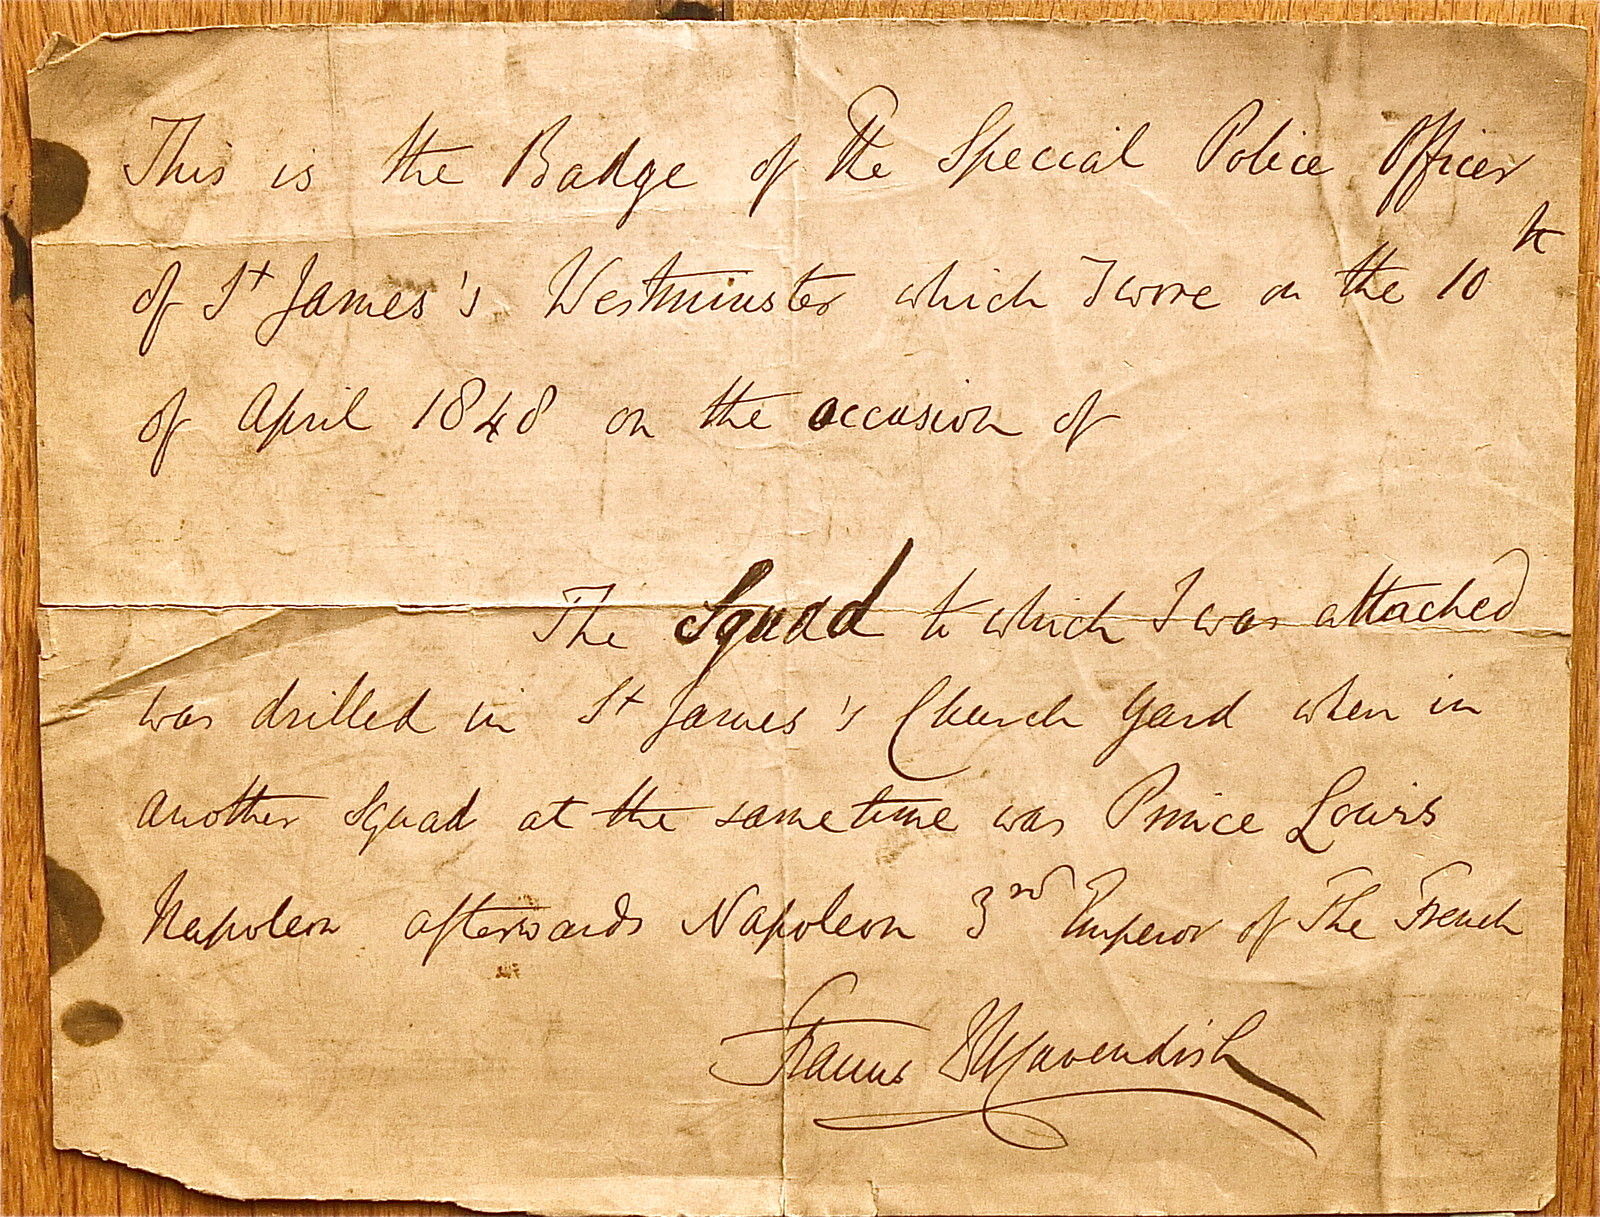 This is the Badge of The Special Police Officer
of St James's Westminster which I wore on the 10th
of April 1848 on the occasion of
The Squad to which I was attached
was drilled in St James's Church Yard when in
another Squad at the same time was Prince Louis
Napoleon afterwards Napoleon 3rd Emperor of The French
Francis Cavendish